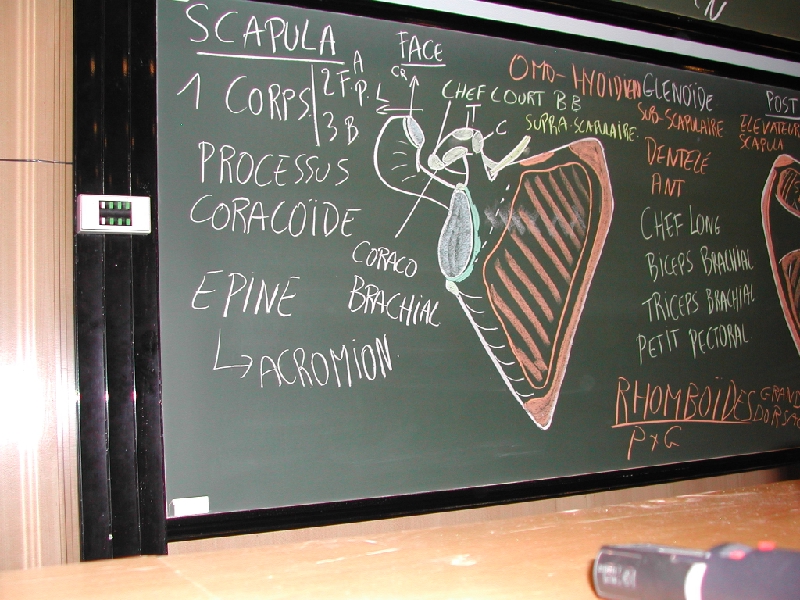 SCAPULA
1 CORPS
2 F. A
P.
3 B
PROCESSUS
CORACOÏDE
EPINE
↳ ACROMION
FACE
CR
L
CHEF COURT BB
C
SUPRA-SCAPULAIRE
CORACO
BRACHIAL
OMO-HYOIDIEN
GLENOÏDE
SUB-SCAPULAIRE
DENTELÉ
ANT
CHEF LONG
BICEPS BRACHIAL
TRICEPS BRACHIAL
PETIT PECTORAL
RHOMBOÏDES
P + G
GRAND
DORSAL
POST
ELEVATEUR
SCAPULA